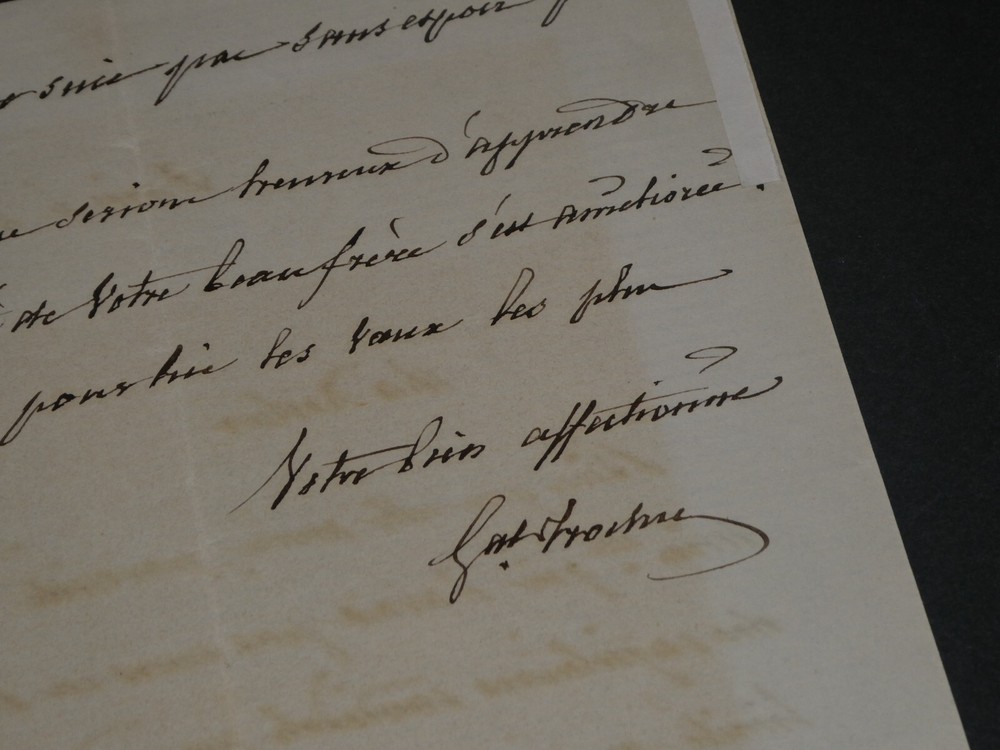 suis pas sans espoir
serions heureux d'apprendre
de Votre beau frère s'est améliorée.
pour lui les vœux les plus
Votre bien affectionné
Gal Trochu